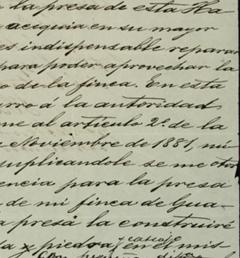 la presa de esta Ha
acequia en su mayor
es indispensable reparar
para poder aprovechar la
o de la finca. En esta
rro á la autoridad
me al artículo 2º de la
Noviembre de 1881, mi
suplicandole se me otor
encia para la presa
de mi finca de Gua
a presa la construiré
a y piedra, en el mis
cascajo